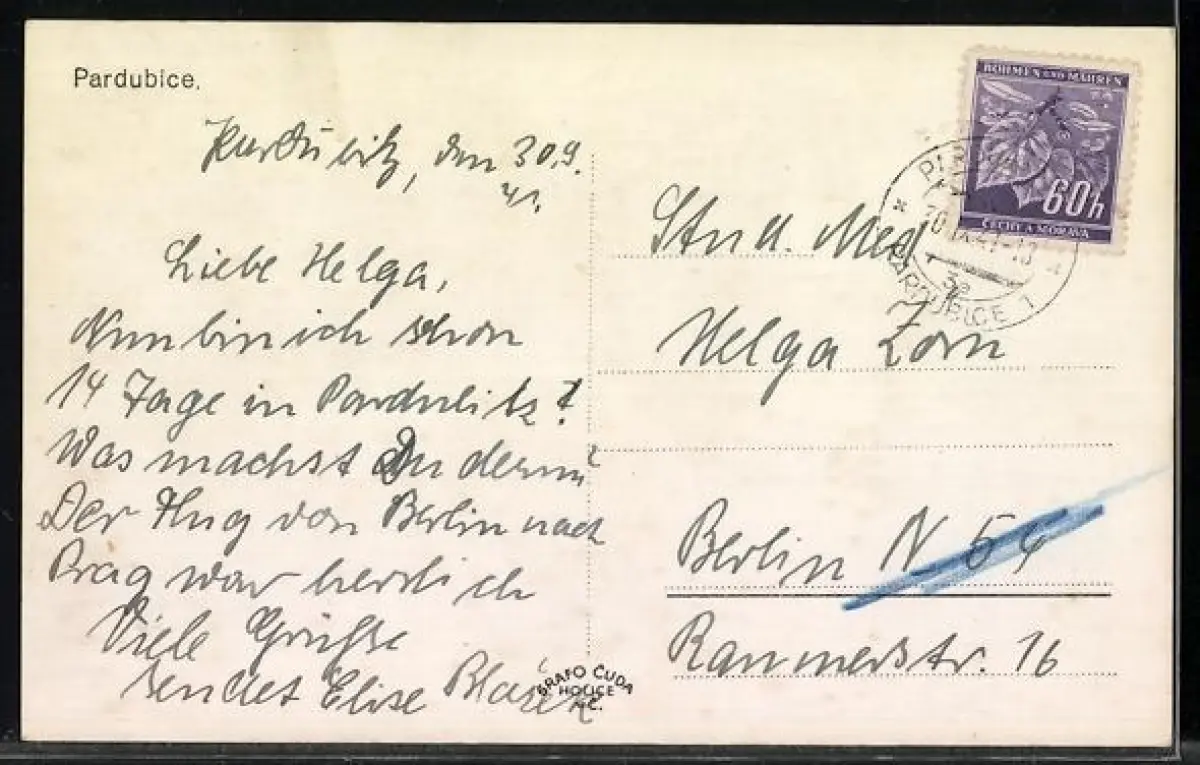 Pardubice.
Pardubitz, den 30.9.
41.
Liebe Helga,
Nun bin ich schon
14 Tage in Pardubitz!
Was machst Du denn?
Der Flug von Berlin nach
Prag war herrlich
Viele Grüße
sendet Elise
GRAFO ČUDA
HOLICE
Stud. Med
Helga Zorn
Berlin N 54
16
BÖHMEN UND MÄHREN
60h
ČECHY A MORAVA
PARDUBICE 1